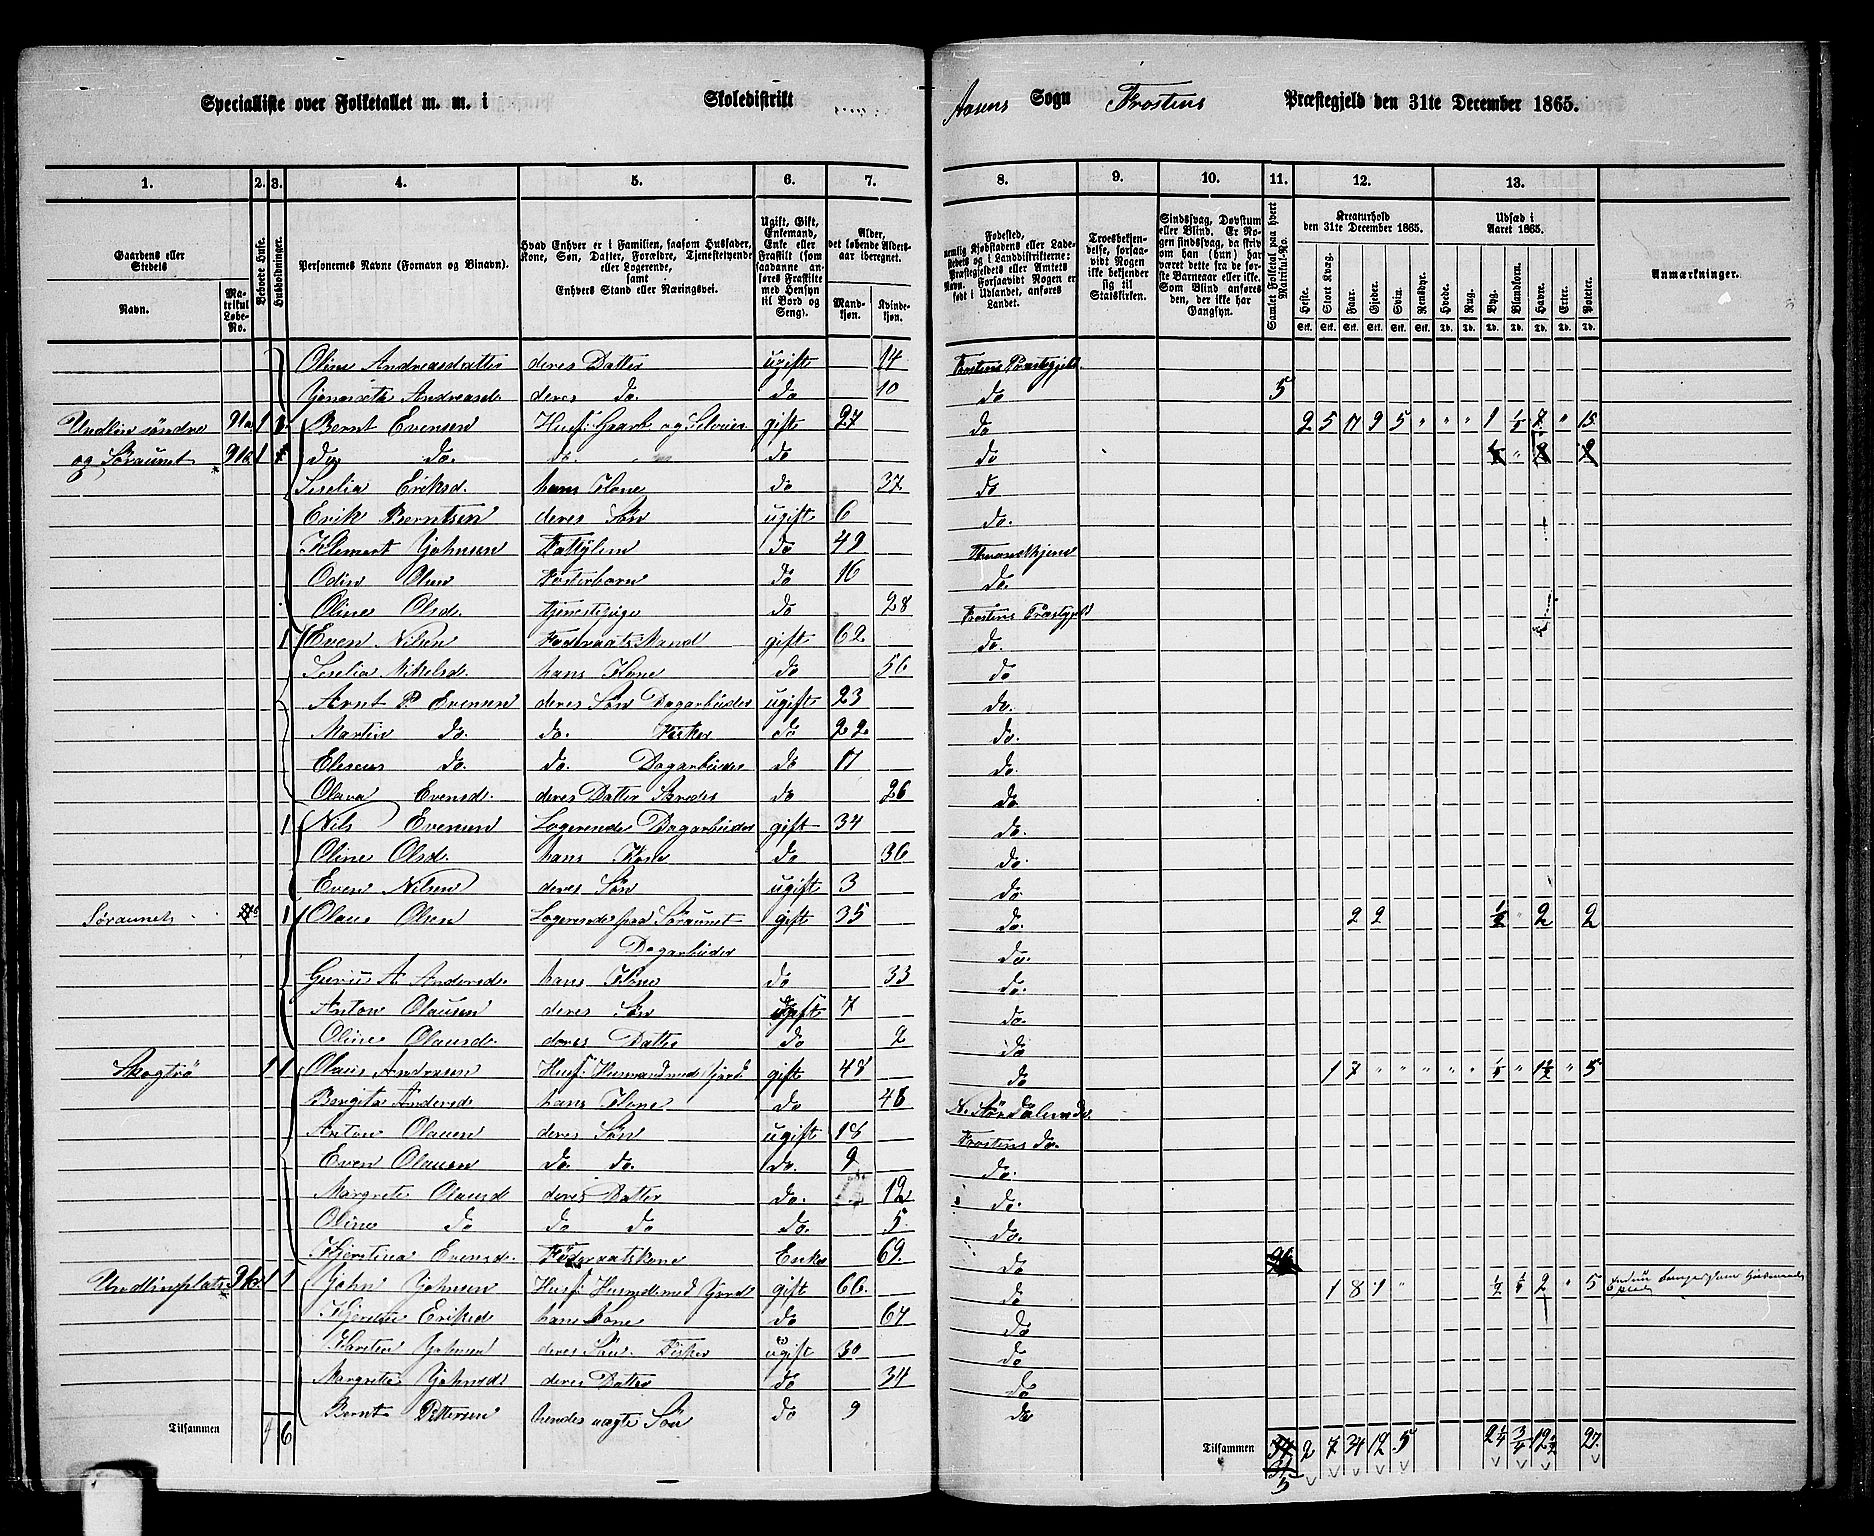 Specialliste over Folketallet m. m. i Skoledistrikt Aasens Sogn Frostens Præstegjeld den 31te December 1865.
1. 2. 3. 4. 5. 6. 7. 8. 9. 10. 11. 12. 13.
Gaardens eller Stedets
Navn. Matrikul Løbe-No.
Beboede Huse.
Husholdninger.
Personernes Navne (Fornavn og Binavn).
Hvad Enhver er i Familien, saasom Husfader, Kone, Søn, Datter, Forældre, Tjenestetyende eller Logerende, samt Enhvers Stand eller Næringsvei.
Ugift, Gift, Enkemand, Enke eller Fraskilt (som saadanne anføres Fraskilte med Hensyn til Bord og Seng).
Alder, det løbende Alders-aar iberegnet.
Mandkjøn. Kvindekjøn.
Fødested, nemlig Kjøbstadens eller Ladestedets og i Landdistrikterne: Præstegjeldets eller Amtets Navn. Forsaavidt Nogen er født i Udlandet, anføres Landet.
Troesbekjendelse, forsaavidt Nogen ikke bekjender sig til Statskirken.
Sindssvag, Døvstum eller Blind. Er Nogen sindssvag, da skriv om han (hun) har været dette fra de første Barneaar eller ikke. Som Blind anføres den, der ikke har Gangsyn.
Samlet Folketal paa hvert Matrikul-No.
Kreaturhold den 31te December 1865.
Heste. Stort Kvæg. Faar. Gjeder. Svin. Rensdyr.
Udsæd i Aaret 1865.
Hvede. Rug. Byg. Blandkorn. Havre. Erter. Poteter.
Anmærkninger.
Oline Andreasdatter deres Datter ugift 14 Frostens Præstegjeld
Andreasd. deres do. do 10 do 5
Undlin søndre 91a 1 1 Bernt Evensen Husf. Gaardb og Selveier gift 27 do 2 5 17 9 5 " " " 1 ½ 7 " 15
og Søraunet 91b 1 do do. do. do do
Seselia Eriksd. hans Kone do 37 do
Erik Berntsen deres Søn ugift 6 do.
Klemet Johnsen Fattiglem do 49
Odin Olsen Fosterbarn do 16 do.
Oline Olsd. Tjenestepige do 28 Frostens Præstegjeld
1 Even Nilsen Føderaads Mand gift 62 do.
Seselia Mikelsd. hans Kone do 56 do
Arnt P Evensen deres Søn Dagarbeider ugift 23 do.
Martin do. do. Fisker do 22 do.
Eliseus do. do. Dagarbeider do 17 do.
Olava Evensd. deres Datter do 26 do.
1 Nils Evensen Logerende Dagarbeider gift 34 do.
Oline Olsd. hans Kone do 36 do.
Even Nilsen deres Søn ugift 3 do
Søraunet 1 Olaus Olsen Logerende paa Søraunet gift 35 do 2 2 ½ " 2 2
Dagarbeider do.
A Andersd. hans Kone do 33 do.
Anton Olausen deres Søn ugift 7 do.
Oline Olausd. deres Datter do 2 do
Skogtrø 1 1 Olaus Andresen Husf. Husmand med Jord gift 48 do 1 7 " " " " " ½ " 1½ " 5
Bergita Andersd hans Kone do 48 N. Størdalens do.
Anton Olausen deres Søn ugift 18 Frostens do.
Even Olausen do. do. do. 9 do.
Margrete Olausd deres Datter do. 12 do.
Oline do do do do. 5 do.
Evensd. Føderaadskone Enke 69. do
Undlinplads 1 1 John Johnsen Husf. Husmd. med Jord gift 66. do 1 8 1 " ½ ¼ 2 " 5
Eriksd hans Kone do 67 do
Johnsen deres Søn. Fisker ugift 30 do
Margrete Johnsd. deres Datter do 34 do
Bernt Pettersen hendes uægte Søn do 9 do
Tilsammen 4 6 Tilsammen 2 7 34 12 5 2¼ ¾ 12½ 27